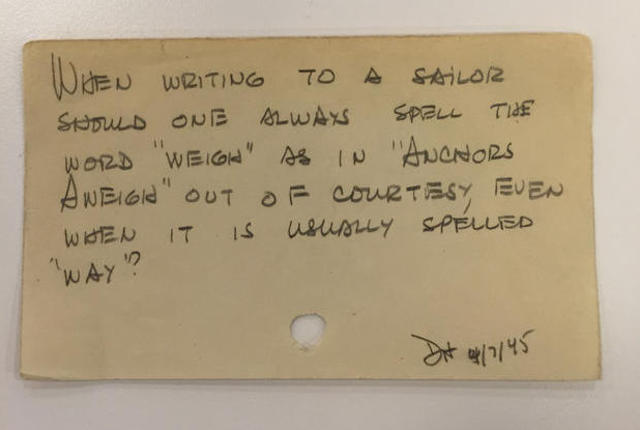 WHEN WRITING TO A SAILOR
SHOULD ONE ALWAYS SPELL THE
WORD "WEIGH" AS IN "ANCHORS
AWEIGH" OUT OF COURTESY, EVEN
WHEN IT IS USUALLY SPELLED
"WAY"?
DH 4/7/45